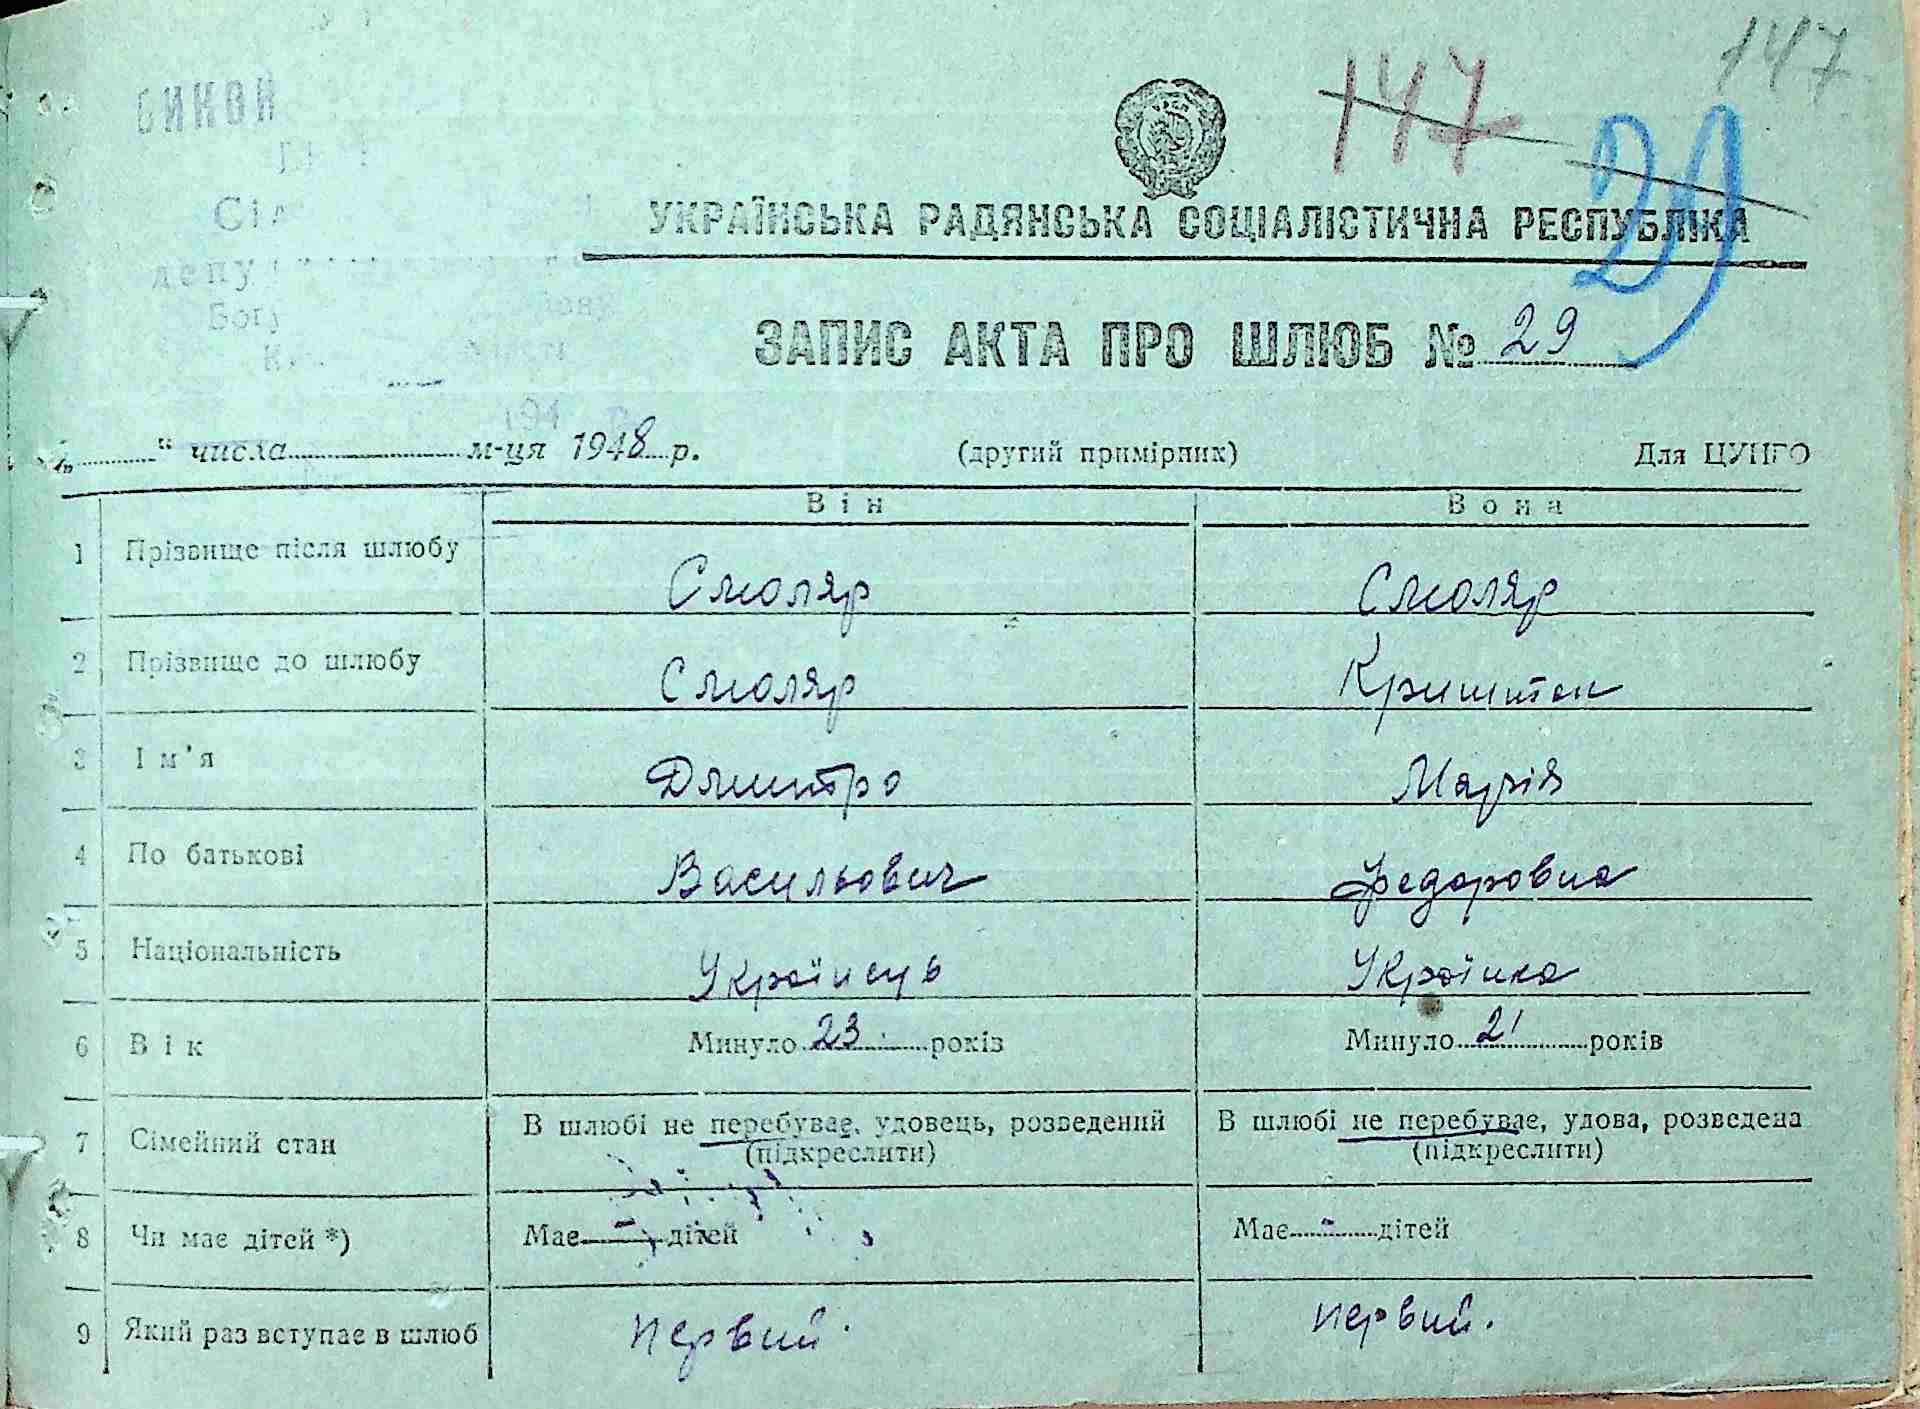 147
147
29
ВИКОН
УКРАЇНСЬКА РАДЯНСЬКА СОЦІАЛІСТИЧНА РЕСПУБЛІКА
ЗАПИС АКТА ПРО ШЛЮБ № 29
„ “ числа м-ця 1948 р. (другий примірник) Для ЦУНГО
Він Вона
1 Прізвище після шлюбу Смоляр Смоляр
2 Прізвище до шлюбу Смоляр Криштоп
3 Ім'я Дмитро Марія
4 По батькові Васильович Федоровна
5 Національність Українець Українка
6 Вік Минуло 23 років Минуло 21 років
7 Сімейний стан В шлюбі не перебуває, удовець, розведений В шлюбі не перебуває, удова, розведена
(підкреслити) (підкреслити)
8 Чи має дітей *) Має - дітей Має - дітей
9 Який раз вступає в шлюб первий. первий.